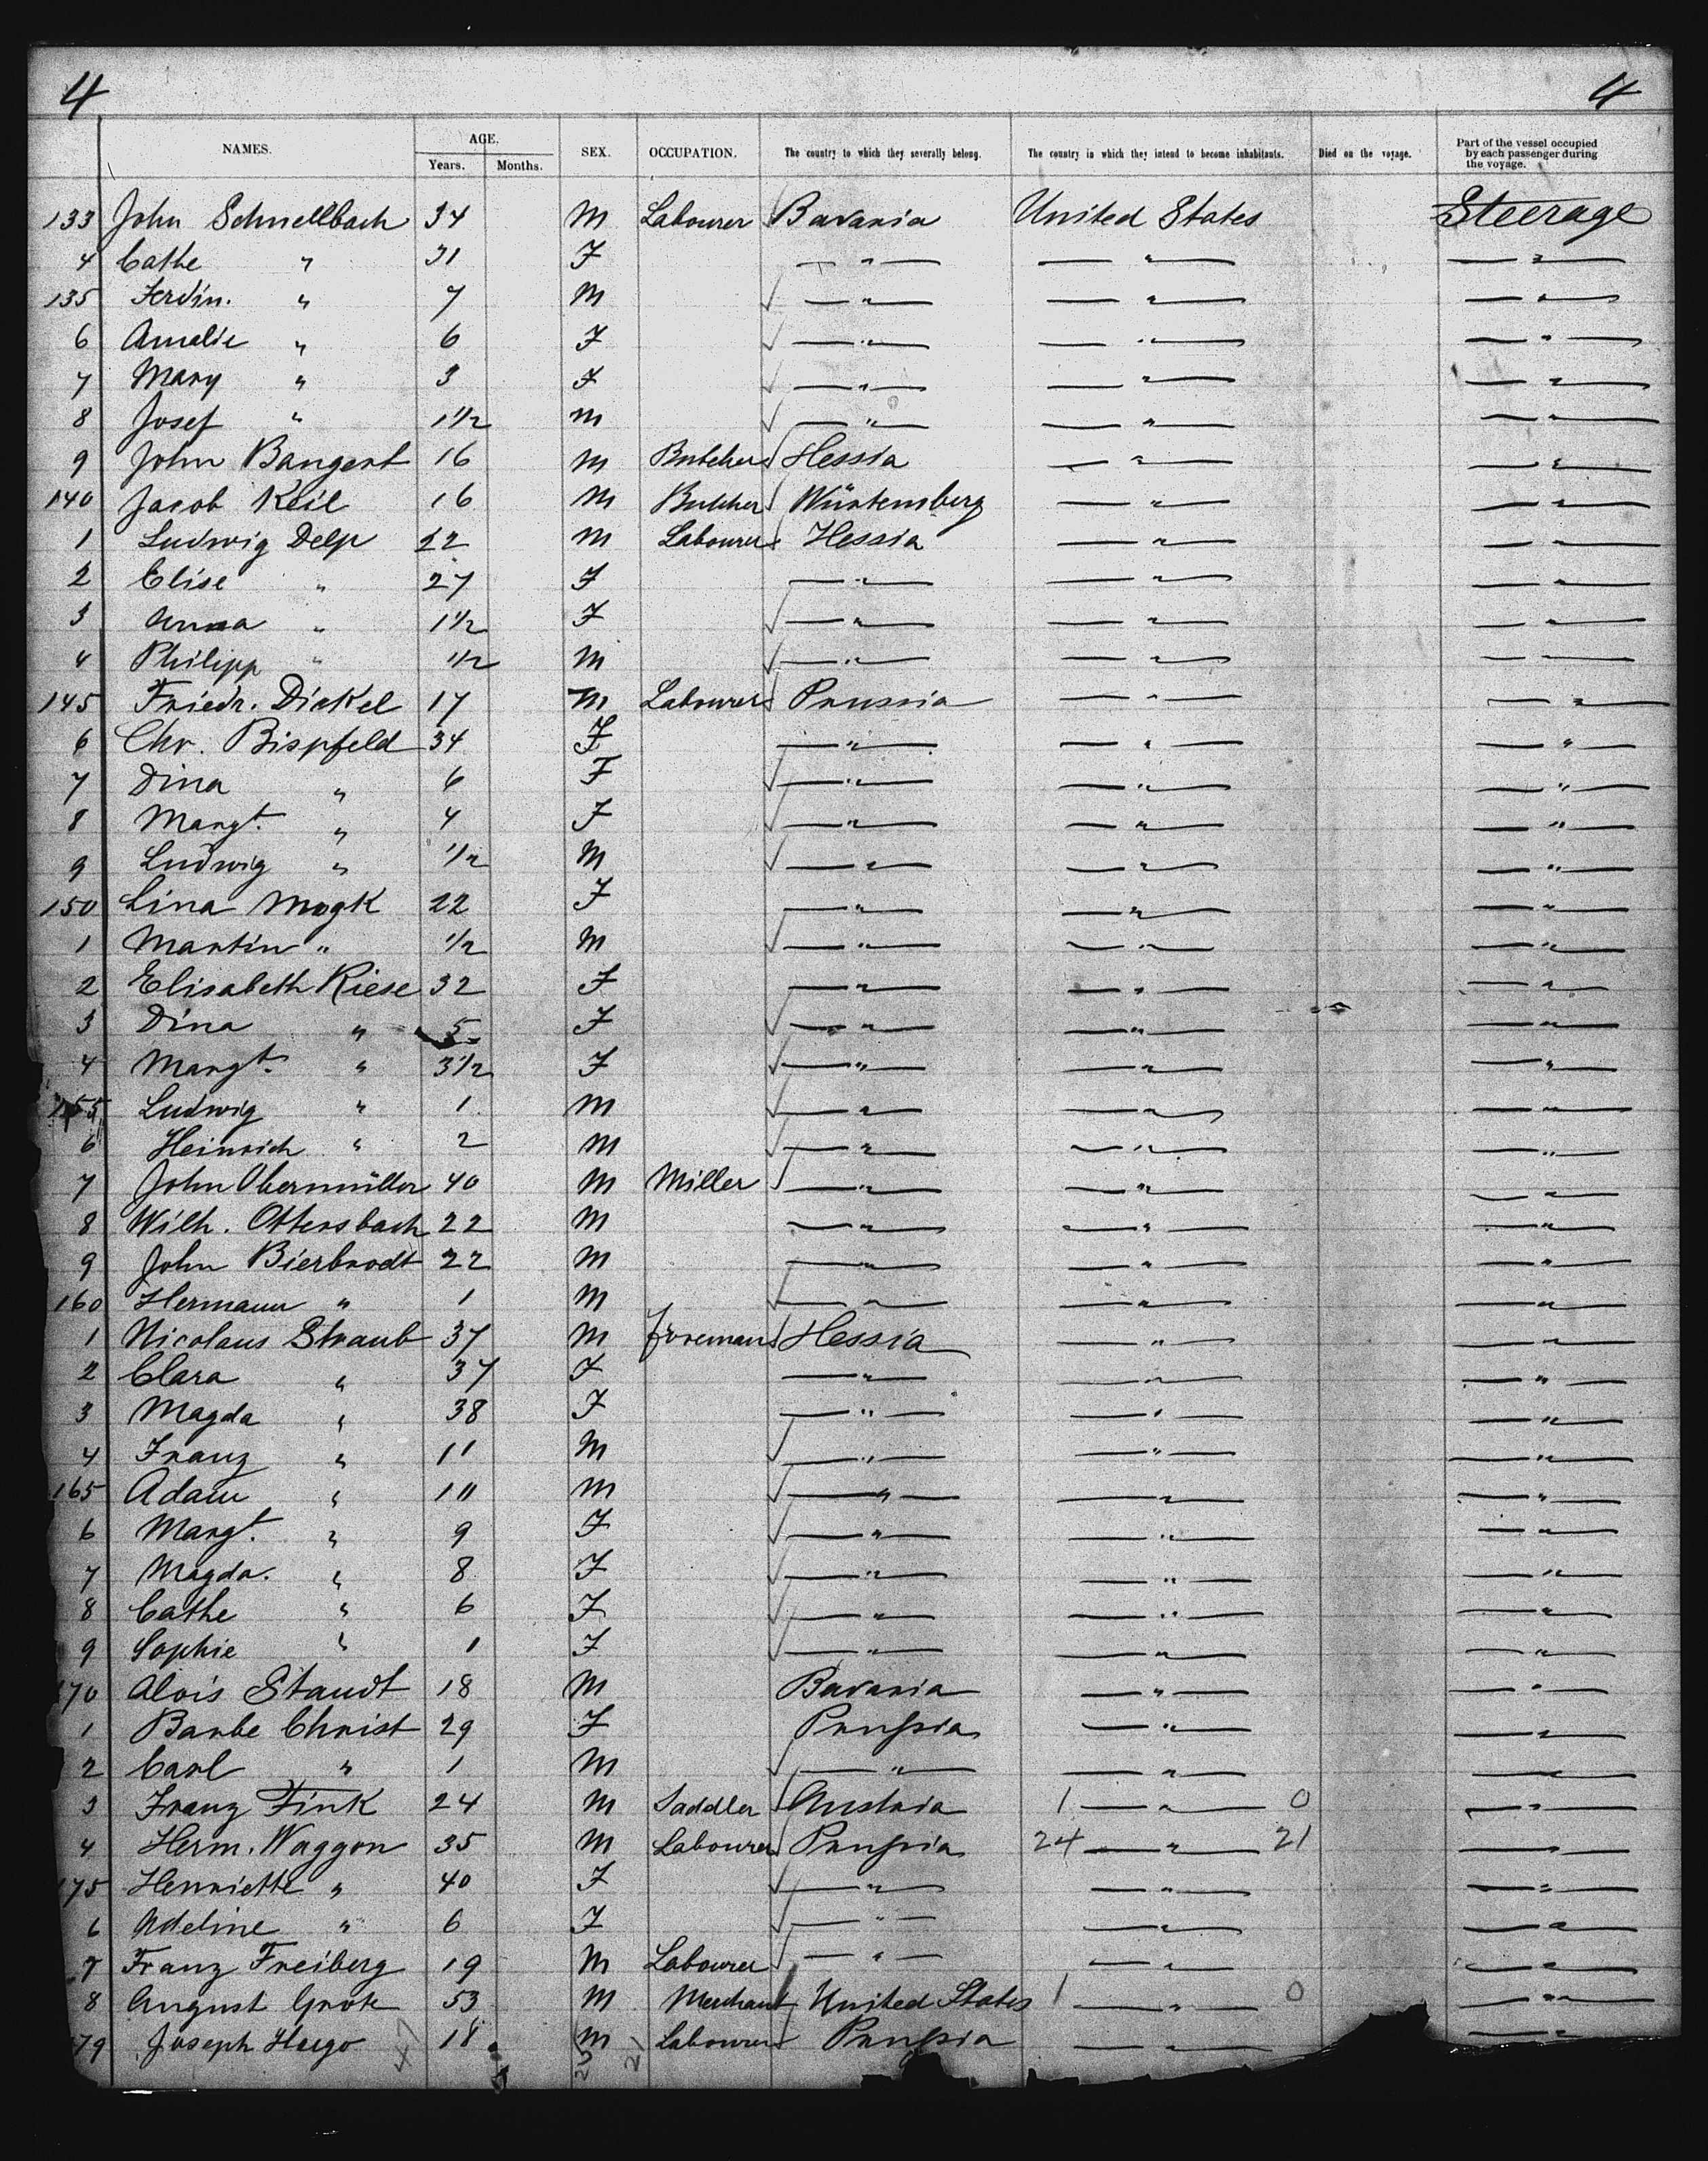 4 4
NAMES. AGE. Years. Months. SEX. OCCUPATION. The country to which they severally belong. The country in which they intend to become inhabitants. Died on the voyage. Part of the vessel occupied by each passenger during the voyage.
133 John Schnellbach 34 M Labourer Bavaria United States Steerage
4 Cathe " 31 F — " — — " — — " —
135 Ferdin. " 7 M — " — — " — — " —
6 Amalie " 6 F — " — — " — — " —
7 Mary " 3 F — " — — " — — " —
8 Josef " 1 1/2 M — " — — " — — " —
9 John Bangert 16 M Butcher Hessia — " — — " —
140 Jacob Keil 16 M Butcher Würtemberg — " — — " —
1 Ludwig Delp 22 M Labourer Hessia — " — — " —
2 Elise " 27 F — " — — " — — " —
3 Anna " 1 1/2 F — " — — " — — " —
4 Philipp " 1/2 M — " — — " — — " —
145 Friedr. Dickel 17 M Labourer Prussia — " — — " —
6 Chr. Bispfeld 34 F — " — — " — — " —
7 Dina " 6 F — " — — " — — " —
8 Margt. " 4 F — " — — " — — " —
9 Ludwig " 1/2 M — " — — " — — " —
150 Lina Mogk 22 F — " — — " — — " —
1 Martin " 1/2 M — " — — " — — " —
2 Elisabeth Riese 32 F — " — — " — — " —
3 Dina " 5 F — " — — " — — " —
4 Margt. " 3 1/2 F — " — — " — — " —
155 Ludwig " 1 M — " — — " — — " —
6 Heinrich " 2 M — " — — " — — " —
7 John Obermüller 40 M Miller — " — — " — — " —
8 Wilh. Ottersbach 22 M — " — — " — — " —
9 John Bierbrodt 22 M — " — — " — — " —
160 Hermann " 1 M — " — — " — — " —
1 Nicolaus Straub 37 M Foreman Hessia — " — — " —
2 Clara " 37 F — " — — " — — " —
3 Magda " 38 F — " — — " — — " —
4 Franz " 11 M — " — — " — — " —
165 Adam " 10 M — " — — " — — " —
6 Margt. " 9 F — " — — " — — " —
7 Magda. " 8 F — " — — " — — " —
8 Cathe " 6 F — " — — " — — " —
9 Sophie " 1 F — " — — " — — " —
170 Alois Staudt 18 M Bavaria — " — — " —
1 Barbe Christ 29 F Prussia — " — — " —
2 Carl " 1 M — " — — " — — " —
3 Franz Fink 24 M Saddler Austria 1 — " — 0 — " —
4 Herm. Waggon 35 M Labourer Prussia 24 — " — 21 — " —
175 Henriette " 40 F — " — — " — — " —
6 Adeline " 6 F — " — — " — — " —
7 Franz Freiberg 19 M Labourer — " — — " — — " —
8 August Grote 53 M Merchant United States 1 — " — 0 — " —
79 Joseph Hargo 18 M Labourer Prussia — " — — " —
47 21